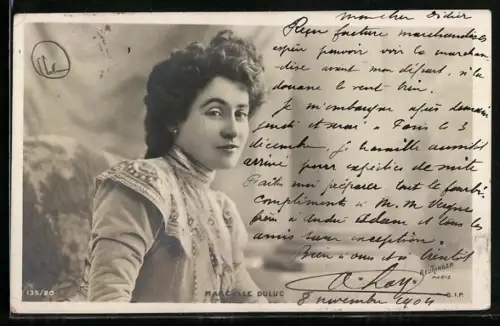 Mon cher Didier
Reçu facture marchandises
espère pouvoir voir la marchan
dise avant mon départ, si la
douane le veut bien.
Je m'embarque après demain
jeudi et serai à Paris le 3
décembre, je travaille aussitôt
arrivé pour expédier de suite
Faites moi préparer tout le fourbi
compliments à M. M. 
frère à André Adam et tous les
amis sans exception.
Bien à vous et à bientôt
8 novembre 1904
REUTLINGER
PARIS
135/20
MARCELLE DULUC
S.I.P.